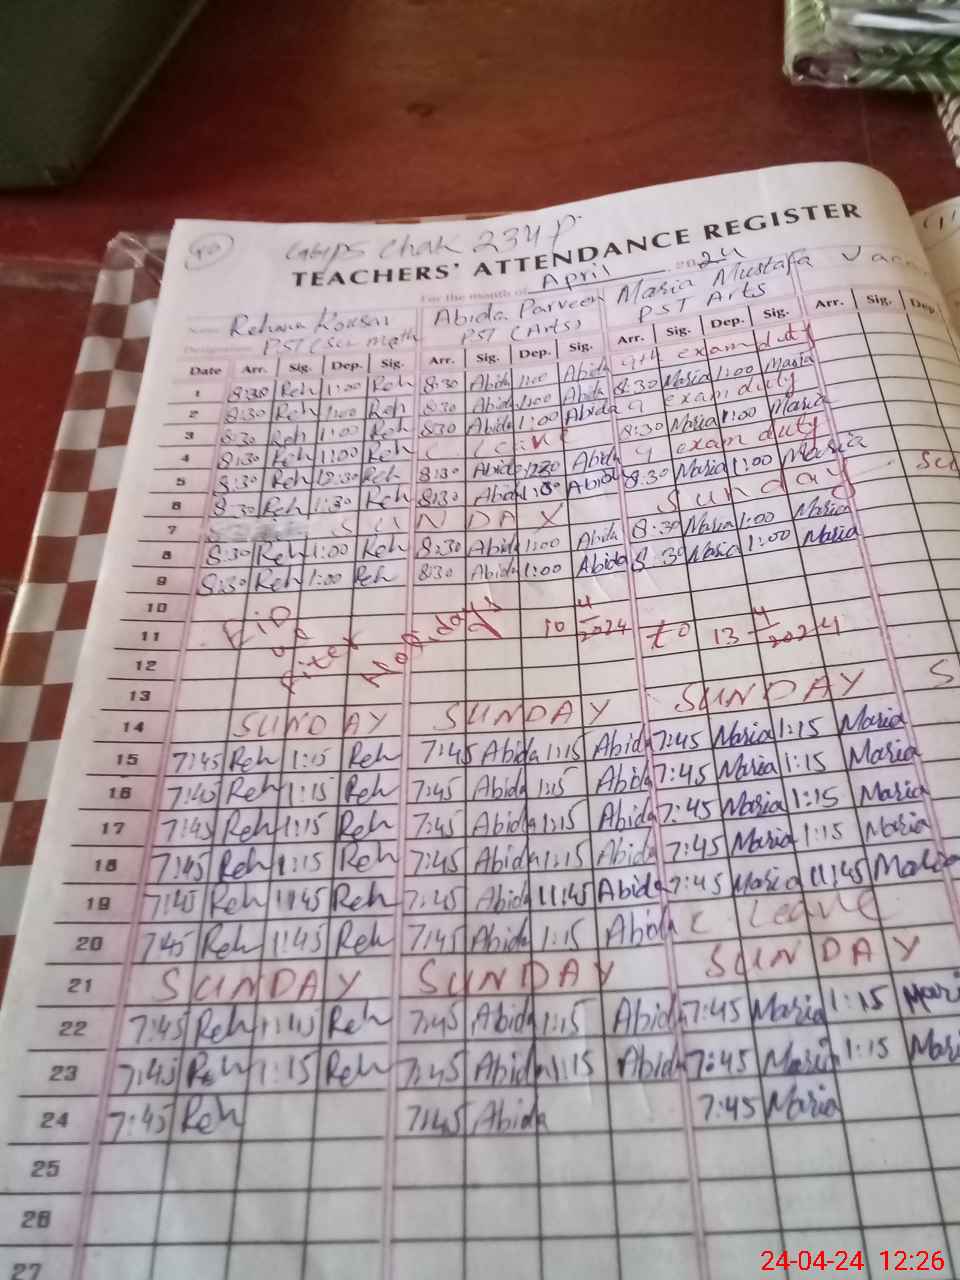 40 GGPS Chak 234 P.
TEACHERS' ATTENDANCE REGISTER
For the month of April 2024
Name Rehana Kousar Abida Parveen Maria Mustafa
Designation PST (Sci math PST (Arts) PST Arts
Date Arr. Sig. Dep. Sig. Arr. Sig. Dep. Sig. Arr. Sig. Dep. Sig. Arr. Sig. Dep.
1 8:30 Reh 1:00 Reh 8:30 Abida 1:00 Abida 9th exam duty
2 8:30 Reh 1:00 Reh 8:30 Abida 1:00 Abida 8:30 Maria 1:00 Maria
3 8:30 Reh 1:00 Reh 8:30 Abida 1:00 Abida 9 exam duty
4 8:30 Reh 1:00 Reh C Leave 8:30 Maria 1:00 Maria
5 8:30 Reh 12:30 Reh 8:30 Abida Abida 9 exam duty
6 8:30 Reh 1:30 Reh 8:30 Abida Abida 8:30 Maria 1:00 Maria
7 SUNDAY Sunday
8 8:30 Reh 1:00 Reh 8:30 Abida 1:00 Abida 8:30 Maria 1:00 Maria
9 8:30 Reh 1:00 Reh 8:30 Abida 1:00 Abida 8:30 Maria 1:00 Maria
10
11 Eid ul Fiter Holidays 10 4/2024 to 13 4/2024
12
13
14 SUNDAY SUNDAY SUNDAY S
15 7:45 Reh 1:15 Reh 7:45 Abida 1:15 Abida 7:45 Maria 1:15 Maria
16 7:45 Reh 1:15 Reh 7:45 Abida 1:15 Abida 7:45 Maria 1:15 Maria
17 7:45 Reh 1:15 Reh 7:45 Abida 1:15 Abida 7:45 Maria 1:15 Maria
18 7:45 Reh 1:15 Reh 7:45 Abida 1:15 Abida 7:45 Maria 1:15 Maria
19 7:45 Reh 11:45 Reh 7:45 Abida 11:45 Abida 7:45 Maria 11:45 Maria
20 7:45 Reh 1:45 Reh 7:45 Abida 1:15 Abida C Leave
21 SUNDAY SUNDAY SUNDAY
22 7:45 Reh Reh 7:45 Abida 1:15 Abida 7:45 Maria 1:15 Mari
23 7:45 Reh 1:15 Reh 7:45 Abida 1:15 Abida 7:45 Maria 1:15 Mari
24 7:45 Reh 7:45 Abida 7:45 Maria
25
26
27
24-04-24 12:26